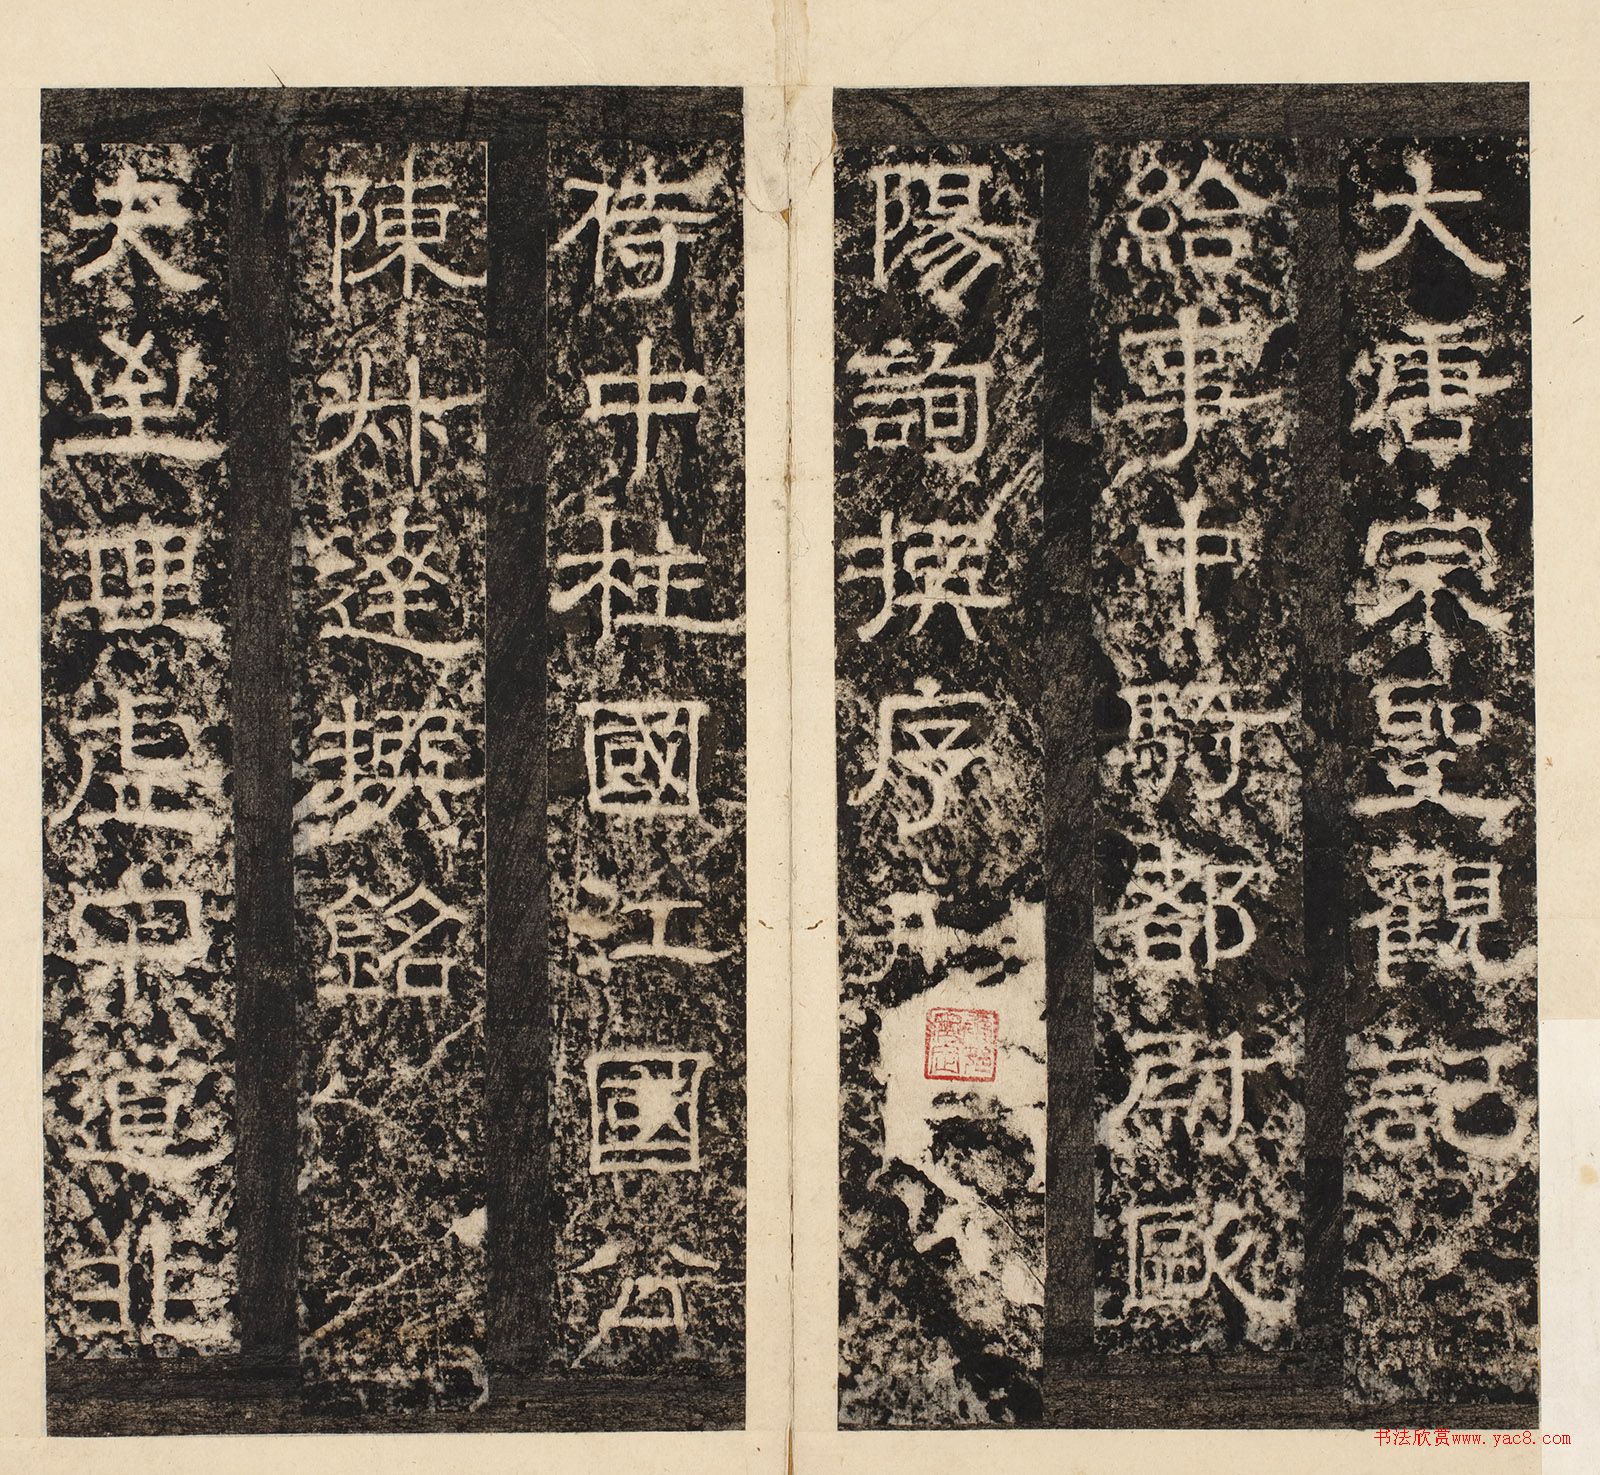 大唐宗聖觀記
給事中騎都尉歐
陽詢撰序
侍中柱國江國公
陳叔達撰銘
夫至理虛寂道非
书法欣赏www.yac8.com